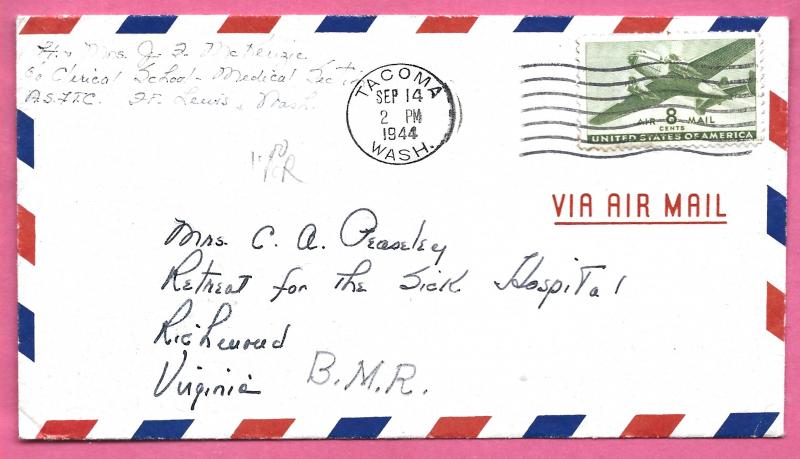 Mrs. J. F. McKenzie
% Clerical School - Medical Sect
A.S.F.T.C. Ft. Lewis, Wash.
TACOMA
SEP 14
2 PM
1944
WASH.
AIR 8 MAIL
CENTS
UNITED STATES OF AMERICA
VIA AIR MAIL
Mrs. C. A. Peaseley
Retreat for the Sick Hospital
Richmond
Virginia B.M.R.